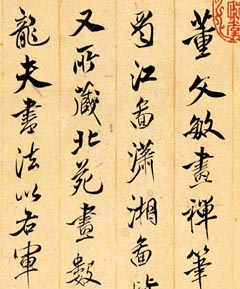 董文敏畫禪筆
蜀江圖瀟湘圖
又所藏北苑畫數
龍夫書法以右軍